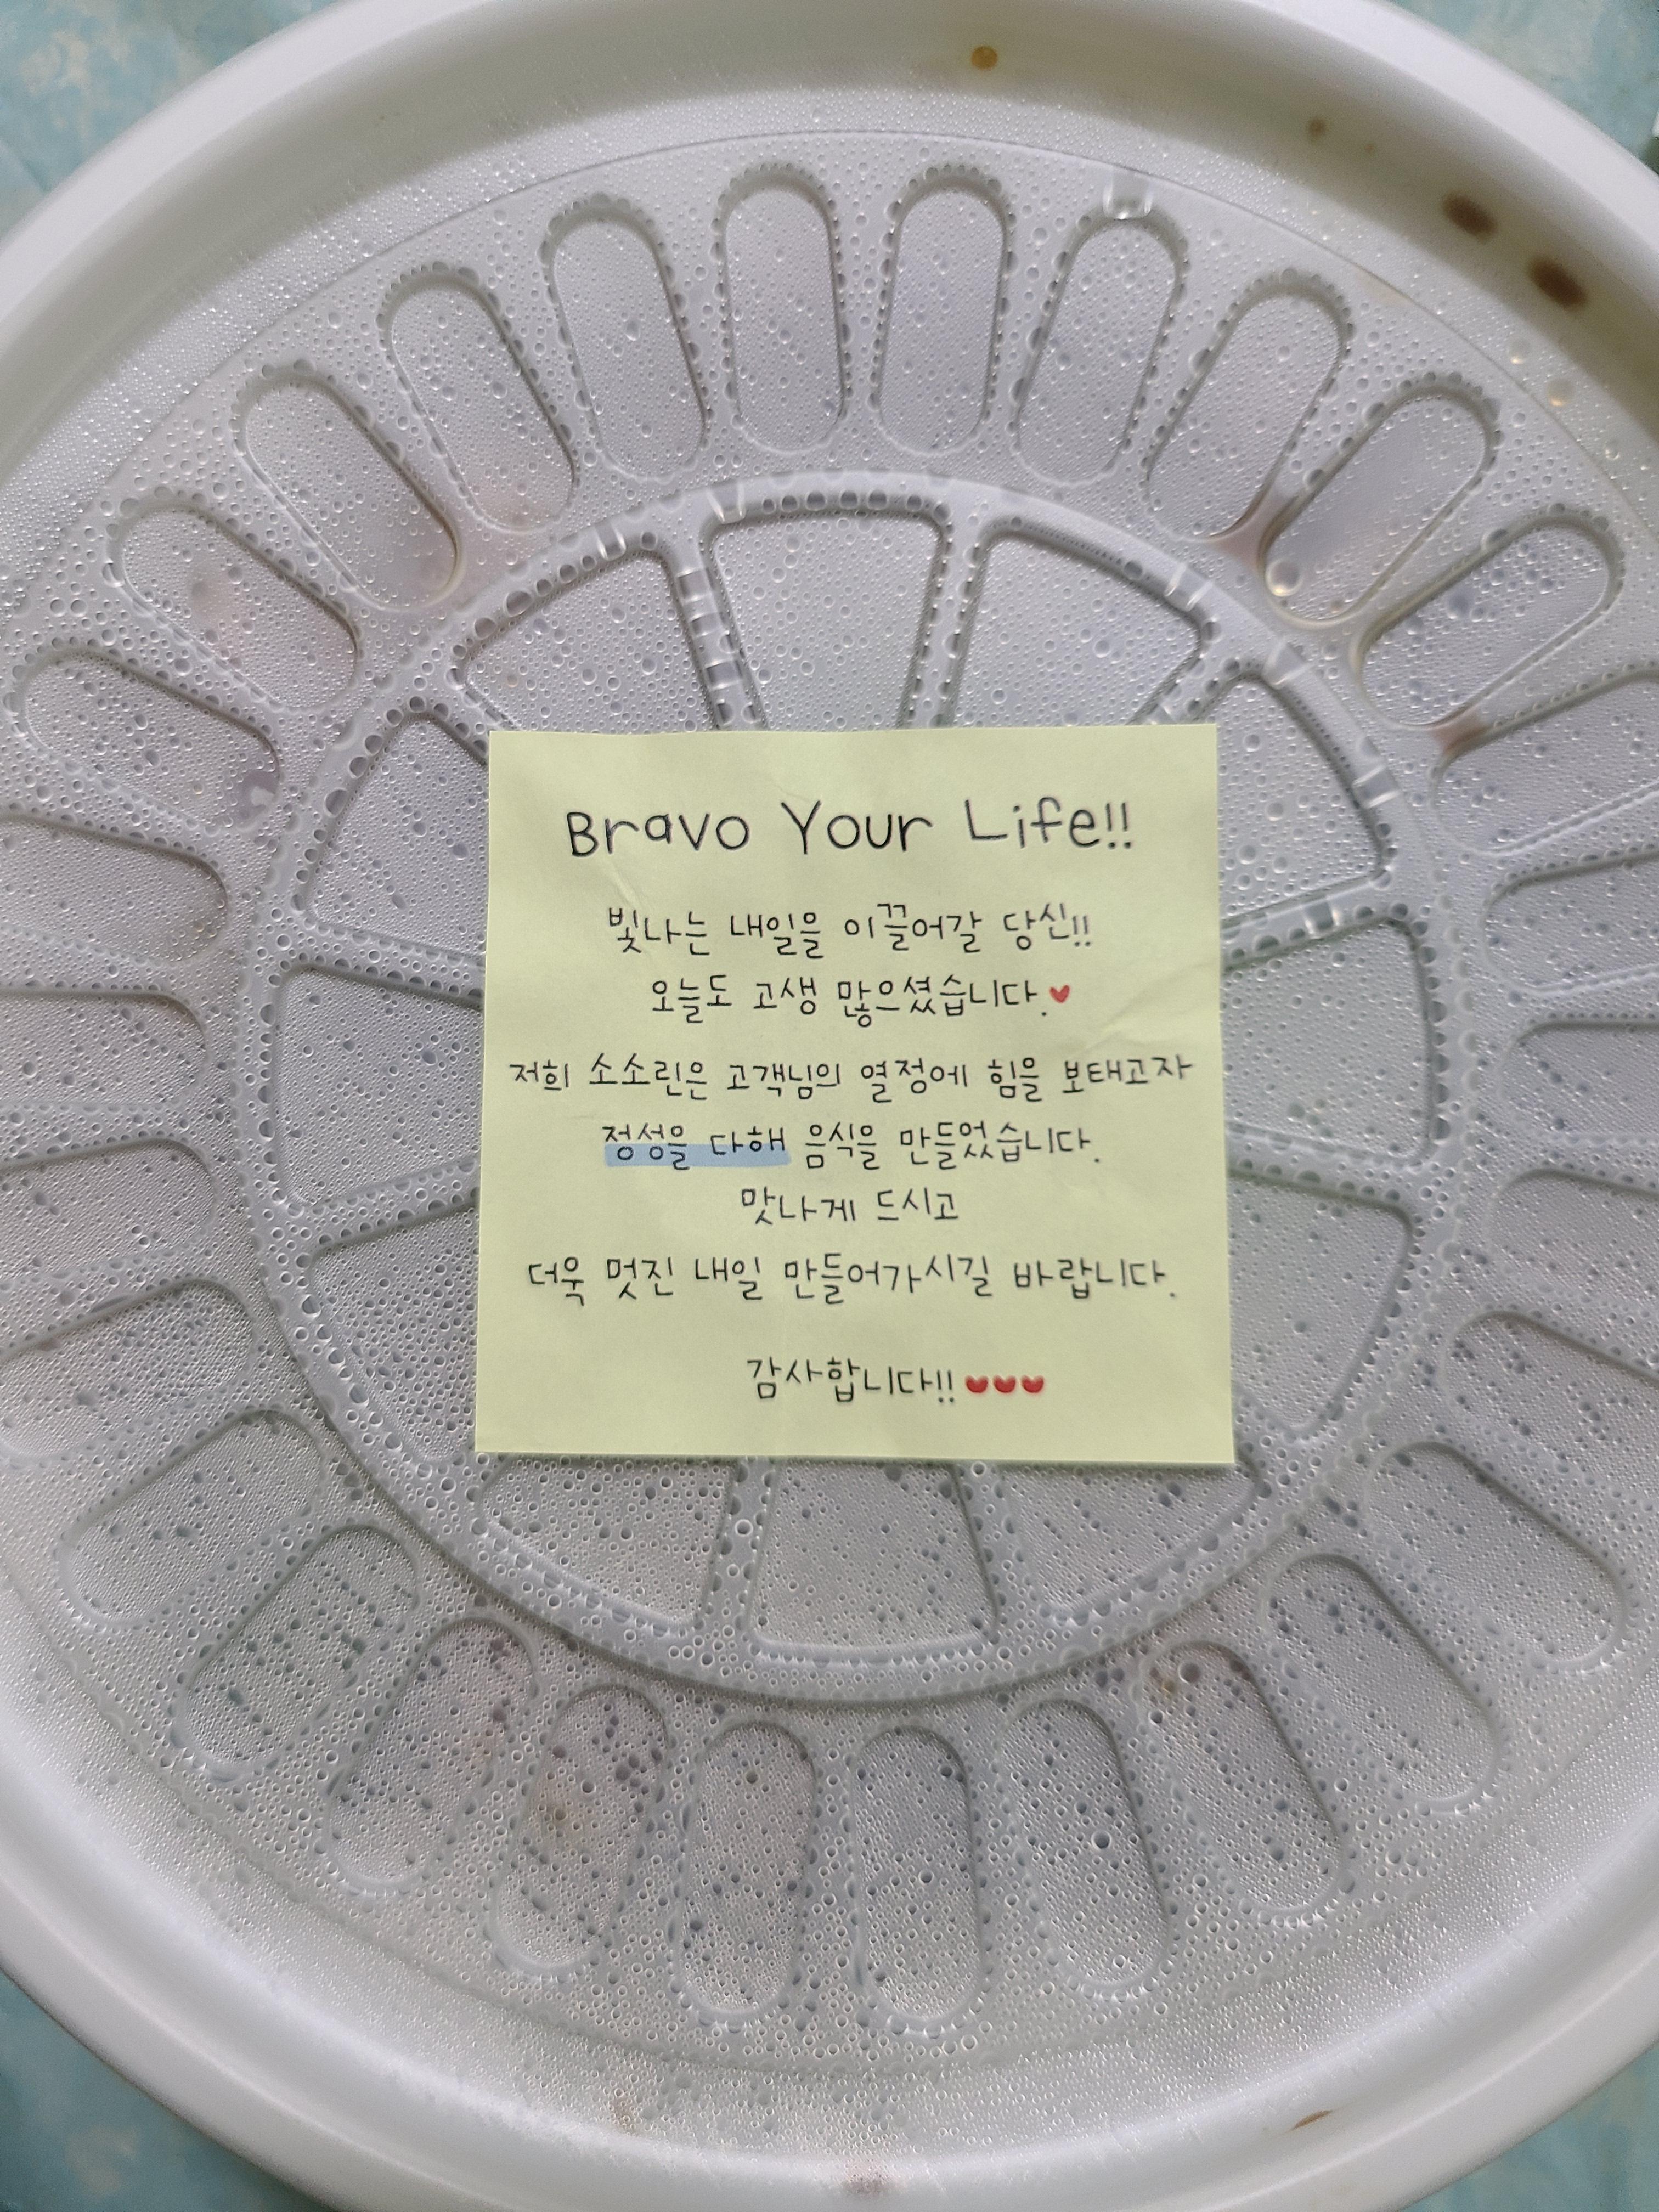 Bravo Your Life!!
빛나는 내일을 이끌어갈 당신!!
오늘도 고생 많으셨습니다.♥
저희 소소린은 고객님의 열정에 힘을 보태고자
정성을 다해 음식을 만들었습니다.
맛나게 드시고
더욱 멋진 내일 만들어가시길 바랍니다.
감사합니다!!♥♥♥